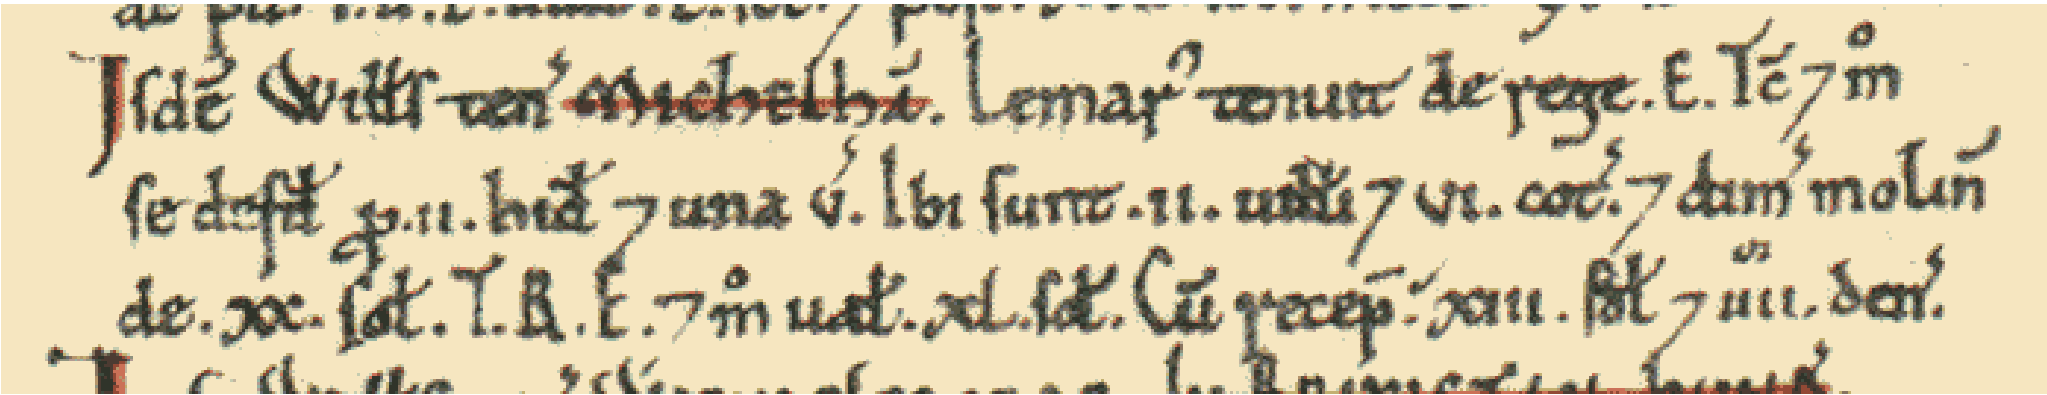 Isdē Witts ten' Michelhā. Lemar' tenuit de rege. E. Tc̄ ⁊ m̊
se defd̄ ꝓ .ii. hid̄ ⁊ una v̄. Ibi sunt .ii. uitti ⁊ vi. cot̄. ⁊ dim' molin̄
de. xx. sot. T. R. E. ⁊ m̊ uat. xl. sot. Cū recep̄. xiii. sot ⁊ iiii. den'.